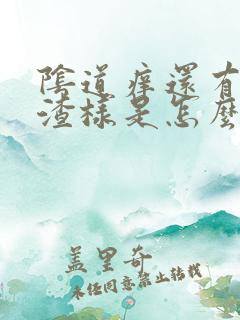 陰道痒還有
渣樣是怎麼
盖里奇
未经同意禁止转载